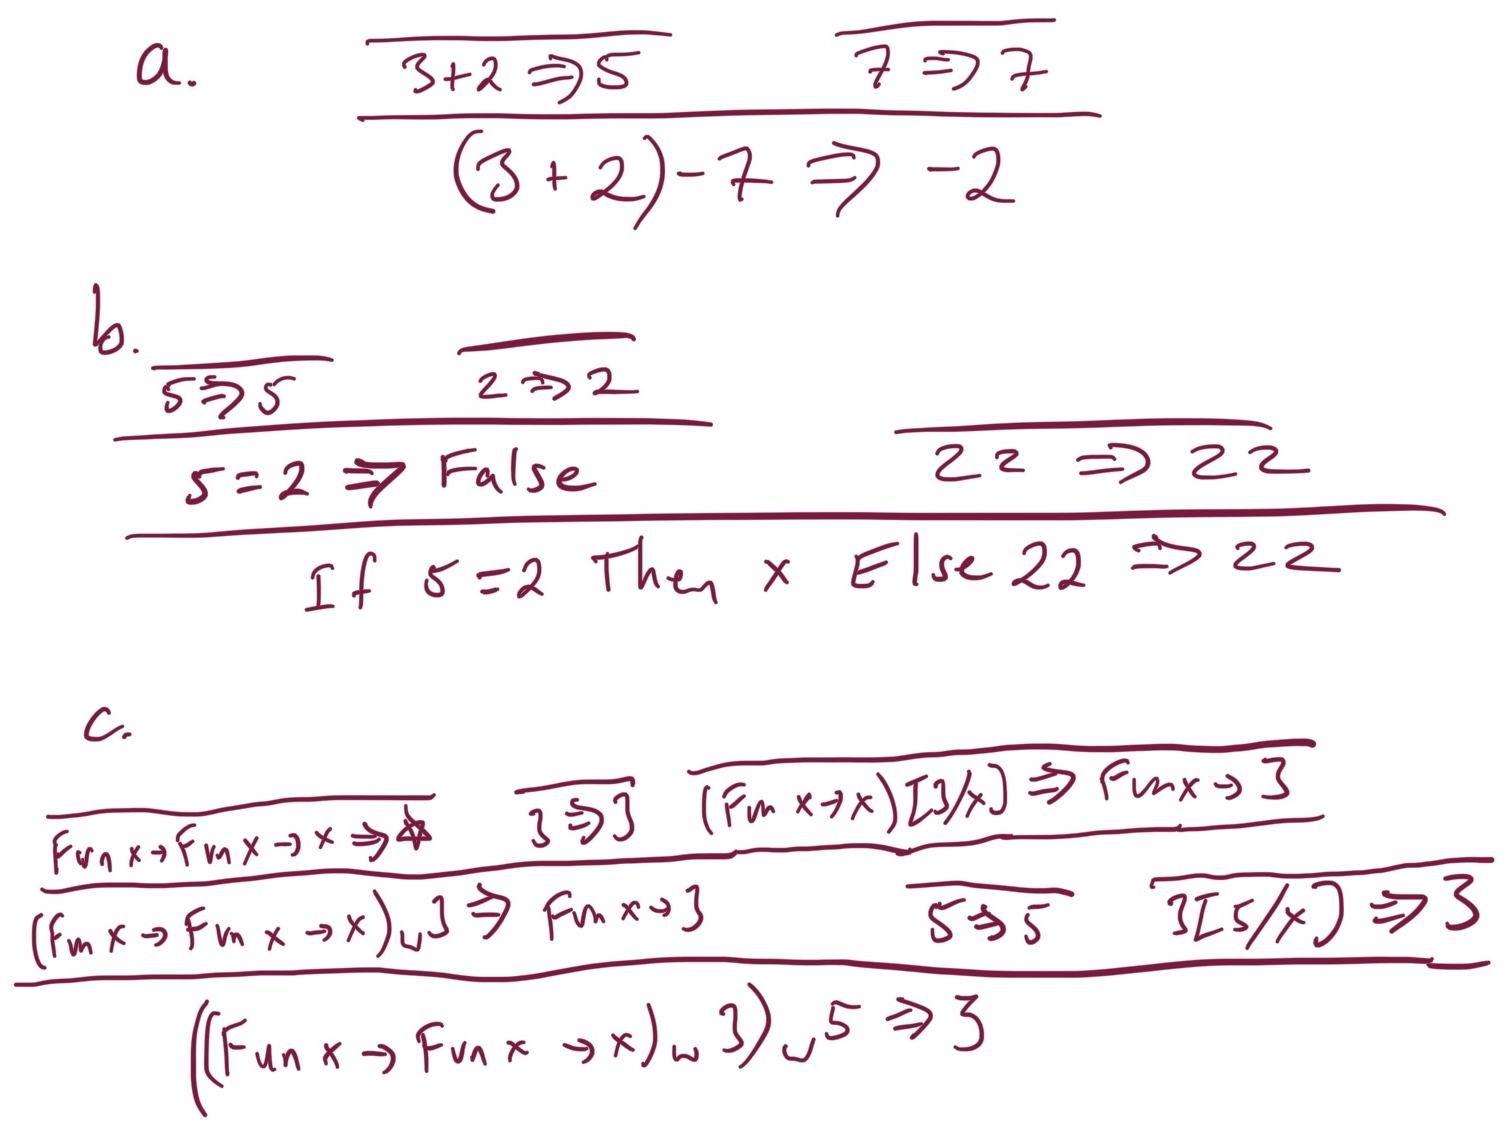 a.
3+2 ⇒ 5 7 ⇒ 7
(3 + 2) - 7 ⇒ -2
b.
5 ⇒ 5 2 ⇒ 2
5 = 2 ⇒ False 22 ⇒ 22
If 5 = 2 Then x Else 22 ⇒ 22
c.
Fun x → Fun x → x ⇒ ☆ 3 ⇒ 3 (Fun x → x)[3/x] ⇒ Fun x → 3
(Fun x → Fun x → x)␣3 ⇒ Fun x → 3 5 ⇒ 5 3[5/x] ⇒ 3
((Fun x → Fun x → x)␣3)␣5 ⇒ 3